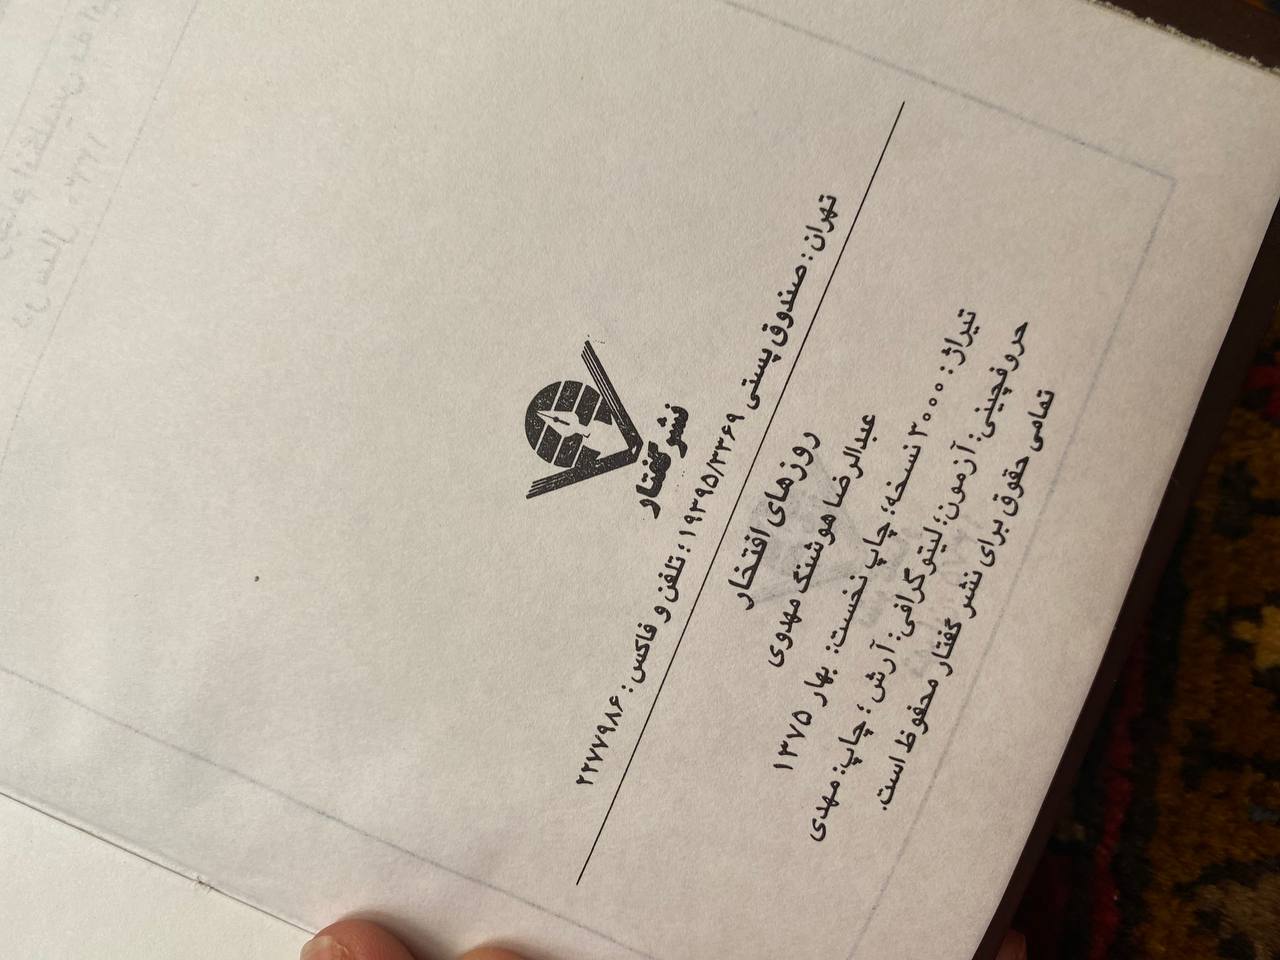 نشر گفتار
تهران: صندوق پستی ۱۹۳۹۵/۳۳۶۹؛ تلفن و فاکس: ۲۲۷۷۹۸۶
روزهای افتخار
عبدالرضا هوشنگ مهدوی
تیراژ: ۳۰۰۰ نسخه؛ چاپ نخست: بهار ۱۳۷۵
حروفچینی: آزمون؛ لیتوگرافی: آرش؛ چاپ: مهدی
تمامی حقوق برای نشر گفتار محفوظ است.